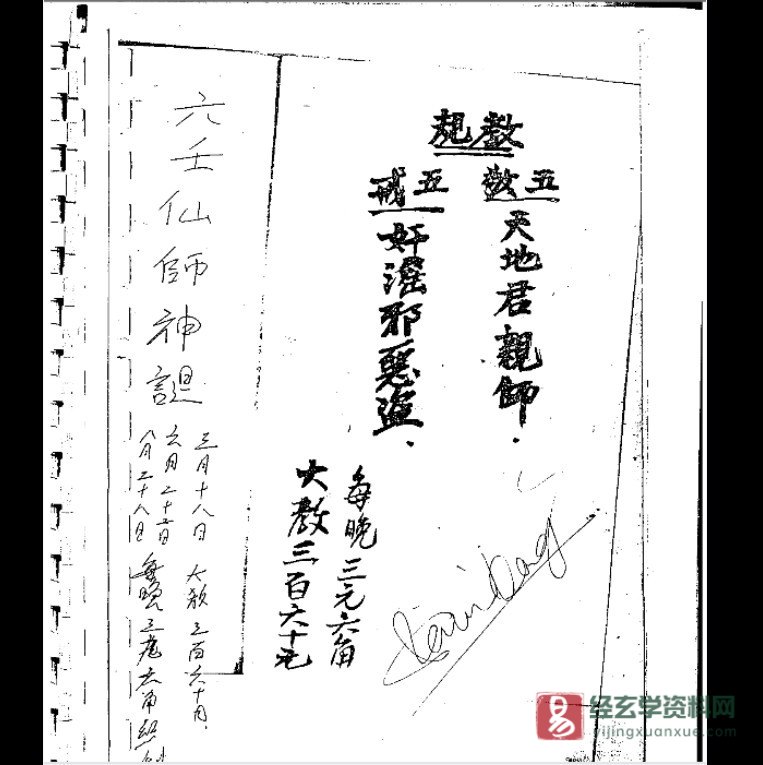 教規
五敬
天地君親師.
五戒
奸淫邪惡盜.
每晚三元六角
大教三百六十元
六壬仙師神誕
三月十八日
六月二十日
八月二十八日
大教三百六十
每晚三元六角
易
经玄学资料网
yijingxuanxue.com